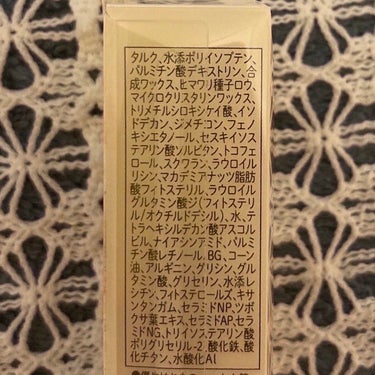 タルク、水添ポリイソブテン、
パルミチン酸デキストリン、合
成ワックス、ヒマワリ種子ロウ、
マイクロクリスタリンワックス、
トリメチルシロキシケイ酸、イソ
ドデカン、ジメチコン、フェノ
キシエタノール、セスキイソス
テアリン酸ソルビタン、トコフェ
ロール、スクワラン、ラウロイル
リシン、マカデミアナッツ脂肪
酸フィトステリル、ラウロイル
グルタミン酸ジ(フィトステリ
ル/オクチルドデシル)、水、テ
トラヘキシルデカン酸アスコル
ビル、ナイアシンアミド、パルミ
チン酸レチノール、BG、コーン
油、アルギニン、グリシン、グル
タミン酸、グリセリン、水添レ
シチン、フィトステロールズ、キサ
ンタンガム、セラミドNP、ツボ
クサ葉エキス、セラミドAP、セラ
ミドNG、トリイソステアリン酸
ポリグリセリル-2、酸化鉄、酸
化チタン、水酸化Al